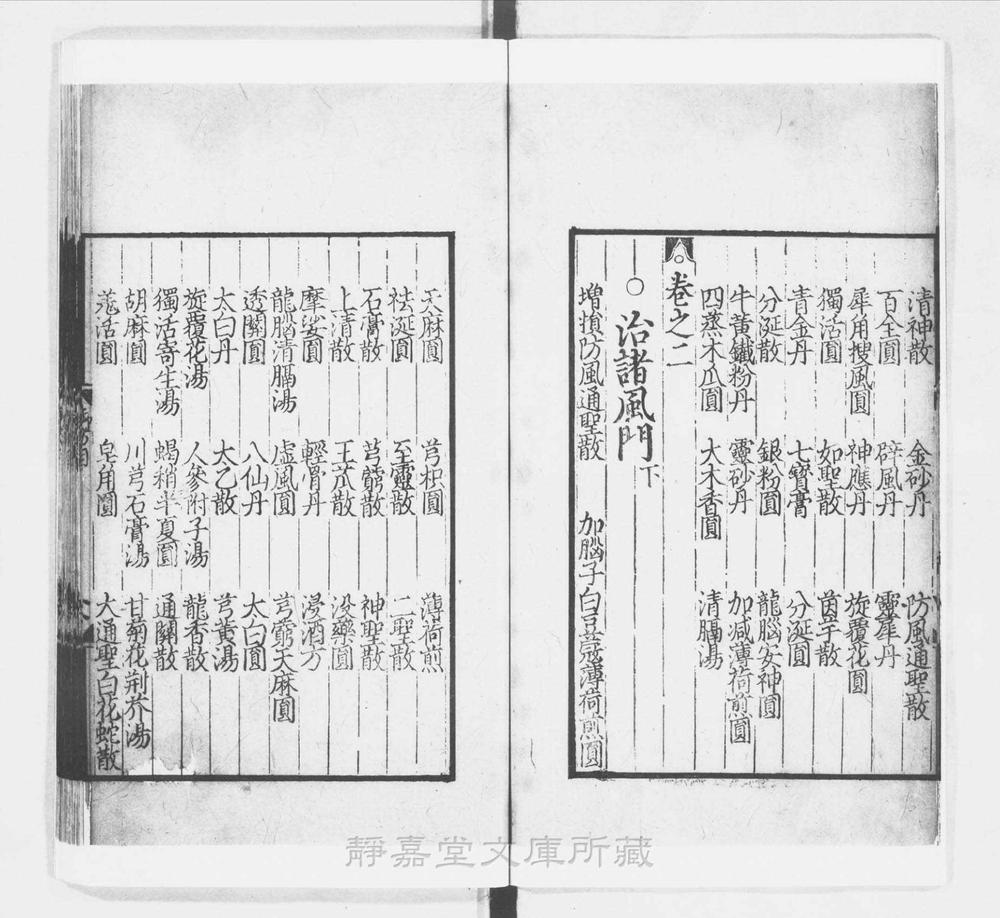 清神散　金砂丹　防風通聖散
百全圓　辟風丹　靈犀丹
犀角搜風圓　神應丹　旋覆花圓
獨活圓　如聖散　茵芋散
青金丹　七寶膏　分涎圓
分涎散　銀粉圓　龍腦安神圓
牛黃鐵粉丹　靈砂丹　加減薄荷煎圓
四蒸木瓜圓　大木香圓　清膈湯
卷之二
○治諸風門下
增損防風通聖散　加腦子白豆蔻薄荷煎圓
天麻圓　芎枳圓　薄荷煎
祛涎圓　至靈散　二聖散
石膏散　芎藭散　神聖散
上清散　王瓜散　没藥圓
摩娑圓　輕骨丹　浸酒方
龍腦清膈湯　虛風圓　芎藭天麻圓
透關圓　八仙丹　太白圓
太白丹　大乙散　芎黃湯
旋覆花湯　人參附子湯　龍香散
獨活寄生湯　蝎稍半夏圓　通關散
胡麻圓　川芎石膏湯　甘菊花荆芥湯
羗活圓　皂角圓　大通聖白花蛇散
靜嘉堂文庫所藏